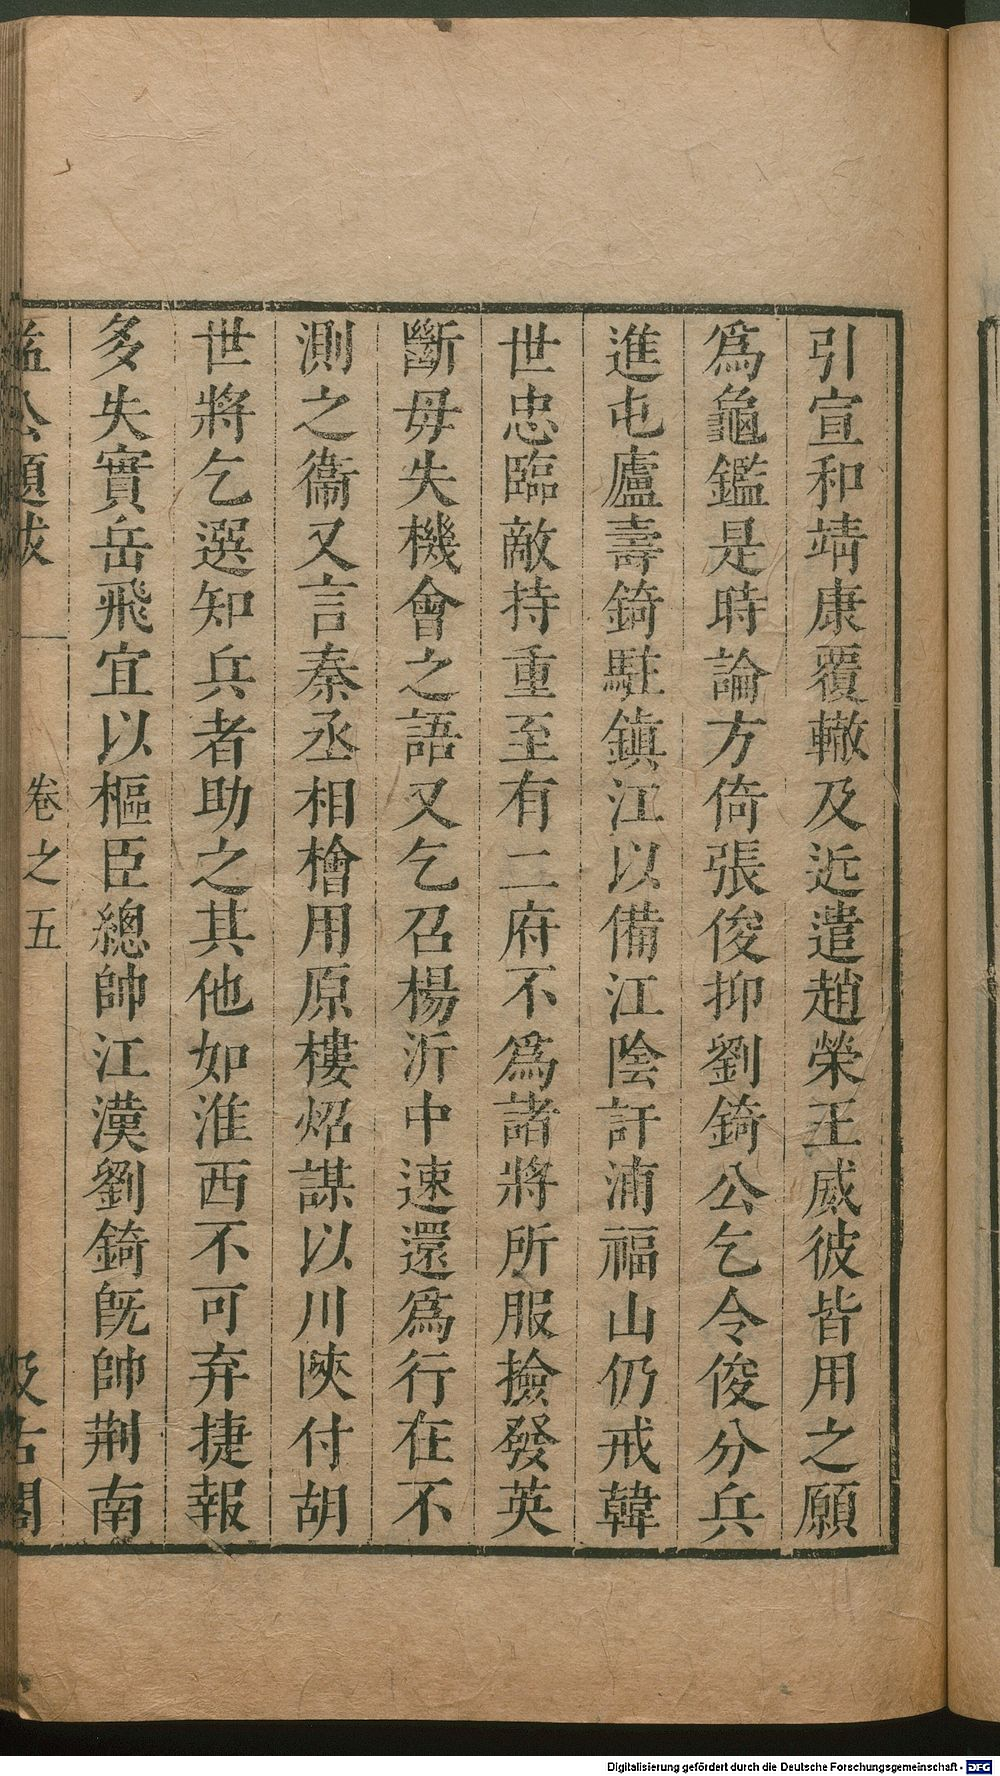 引宣和靖康覆轍及近遣趙榮王威彼皆用之願
爲龜鑑是時論方倚張俊抑劉錡公乞令俊分兵
進屯廬壽錡駐鎮江以備江陰許浦福山仍戒韓
世忠臨敵持重至有二府不爲諸將所服撿發英
斷毋失機會之語又乞召楊沂中速還爲行在不
測之衞又言秦丞相檜用原樓炤謀以川陜付胡
世將乞選知兵者助之其他如淮西不可弃捷報
多失實岳飛宜以樞臣總帥江漢劉錡旣帥荆南
益公題跋 卷之五 汲古閣
Digitalisierung gefördert durch die Deutsche Forschungsgemeinschaft - DFG